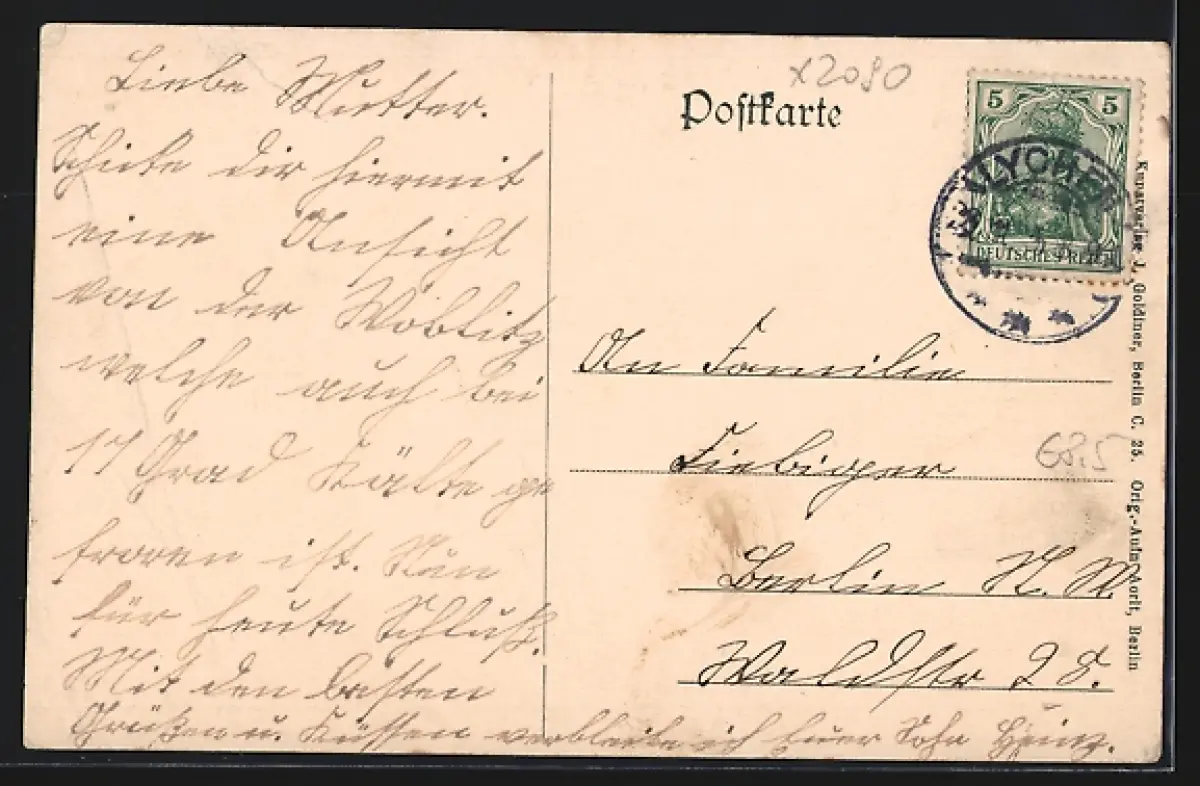 Liebe Mutter.
Schicke dir hiermit
eine Ansicht
von der Woblitz
welche auch bei
17 Grad Kälte ge
froren ist. Nun
für heute Schluß.
Mit den besten
Grüßen u. Küssen verbleibe ich Euer Sohn Heinz.
x2090
Postkarte
5 5
DEUTSCHES REICH
LYCHEN
An Familie
Fiebiger
68,5
Berlin N. W.
Waldstr 28.
J. Goldiner, Berlin C. 25. Orig.-Aufn. Berlin